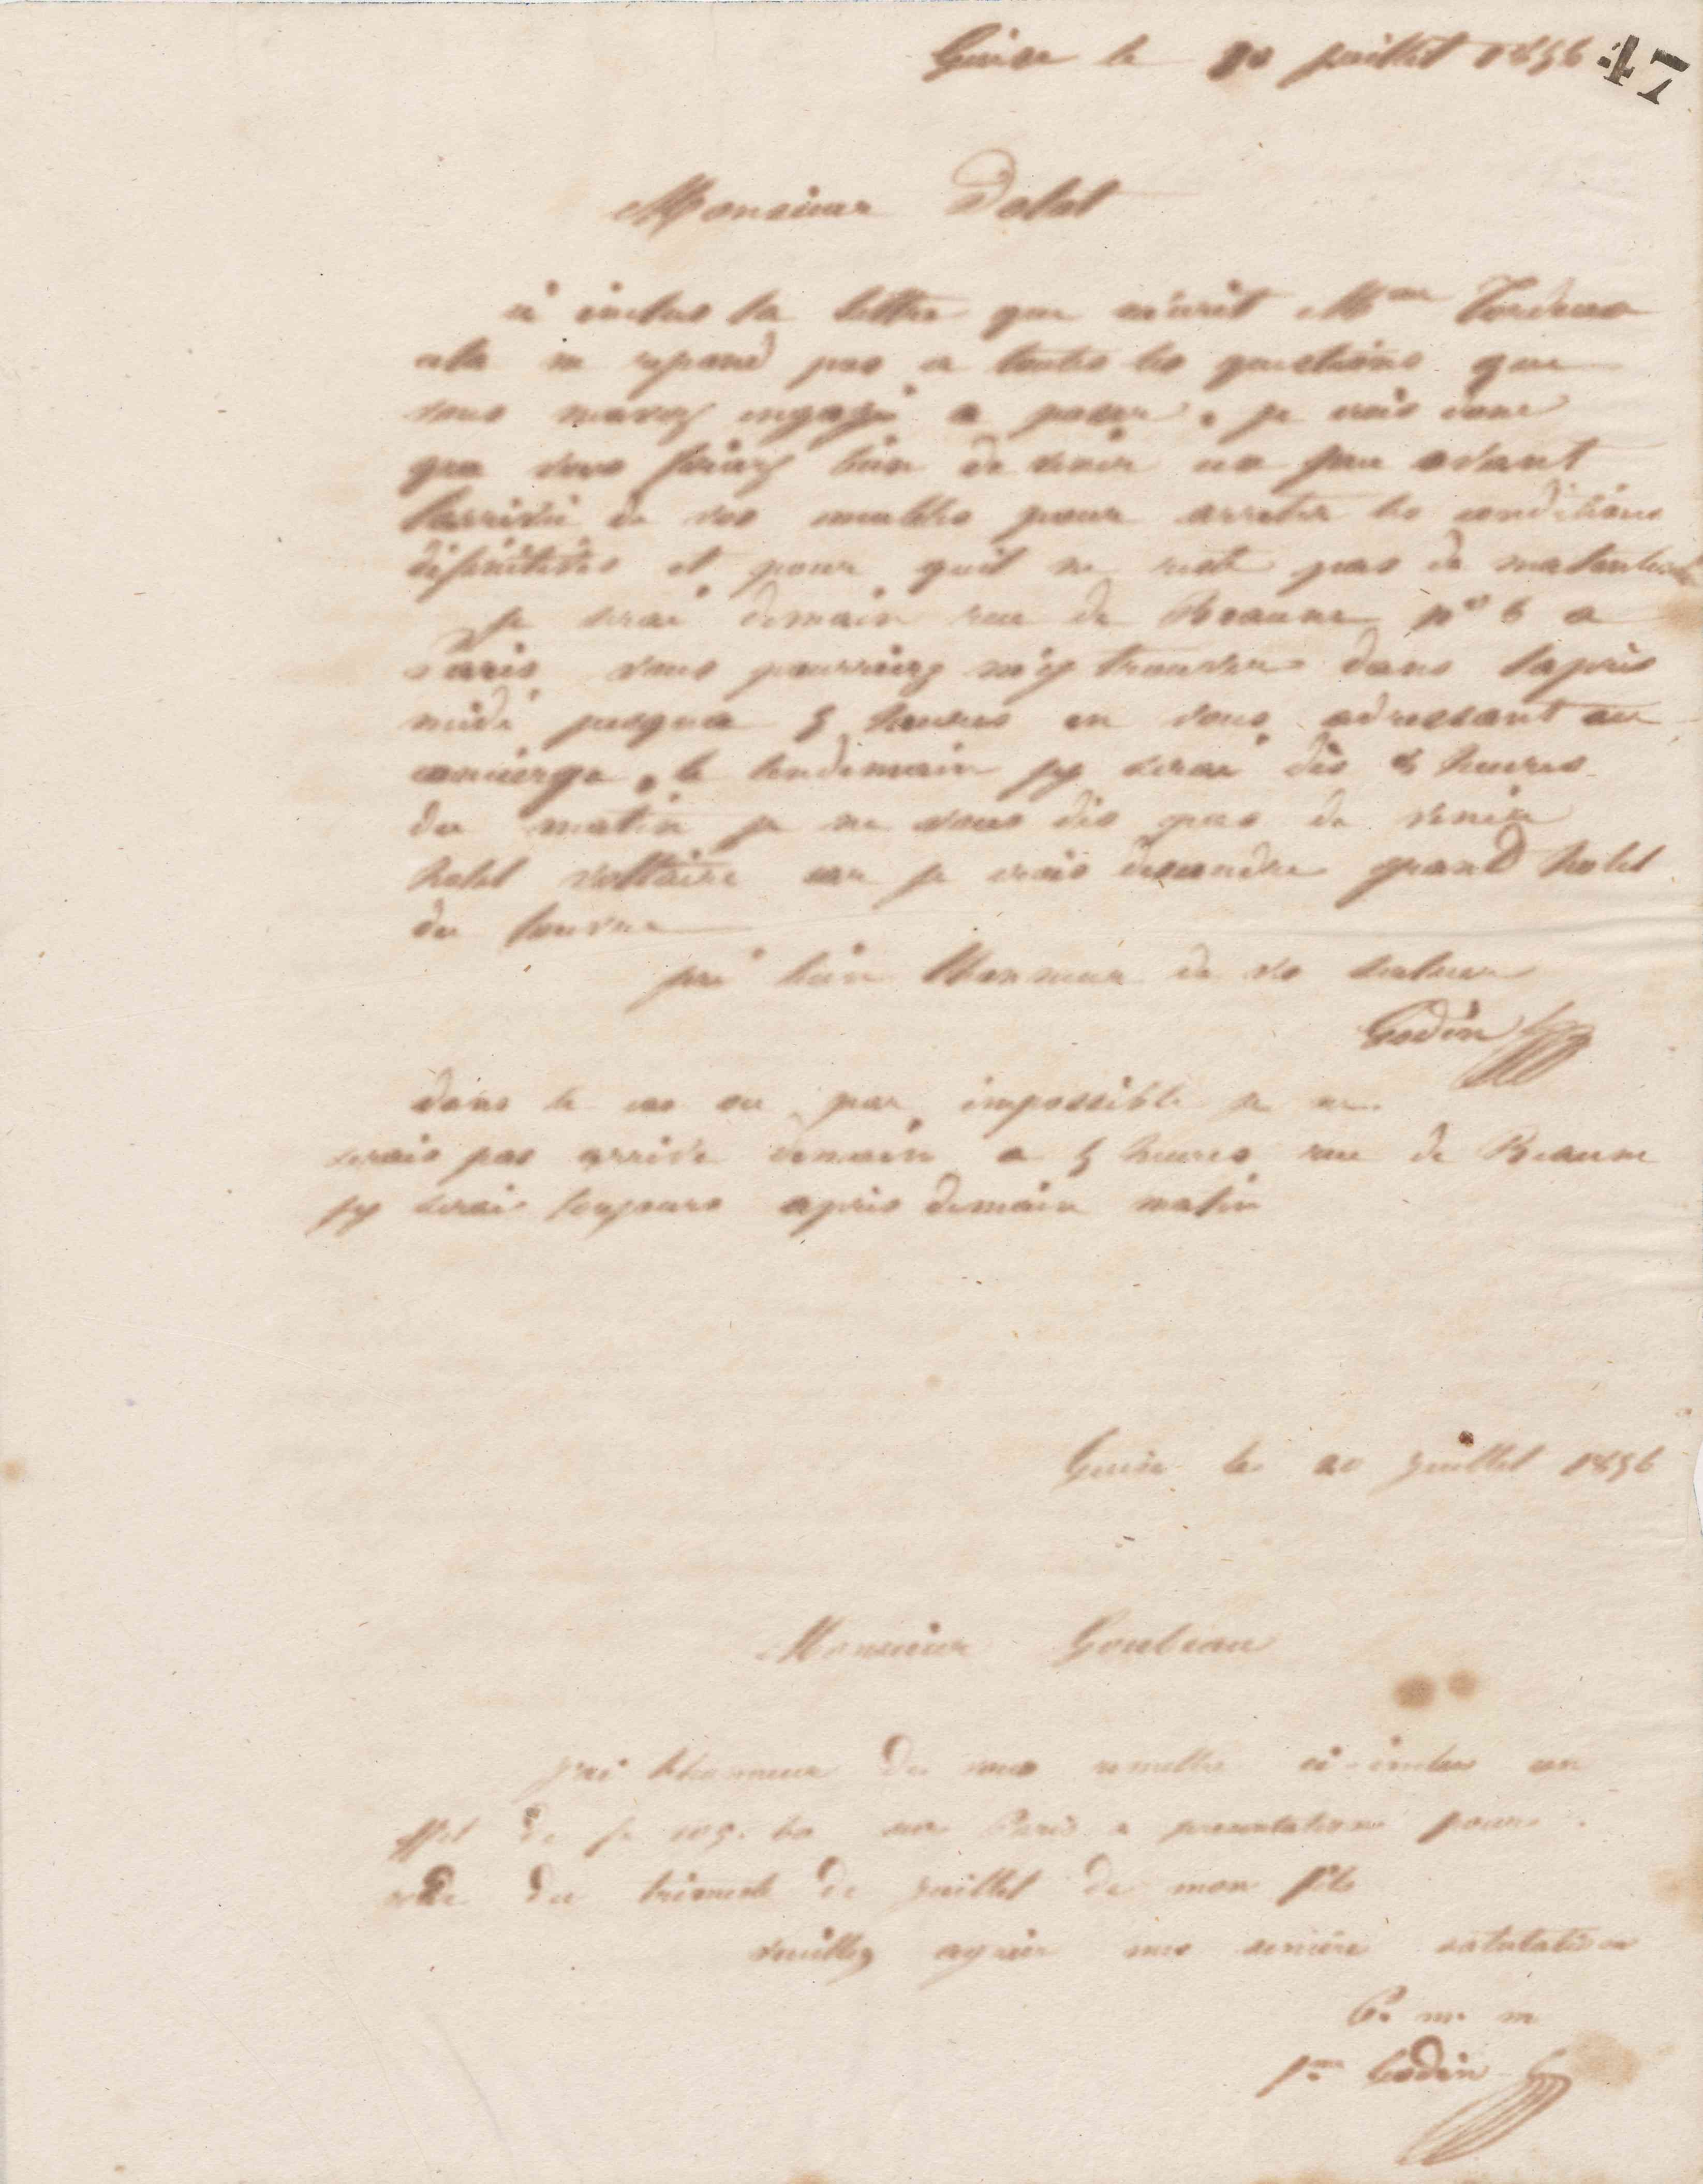 Guise le 20 juillet 1856 47
Monsieur Dolet
ci inclus la lettre que m'écrit Mme Tordeux
cela ne repond pas a toutes les questions que
vous mavez engagé a poser. je crois donc
que vous feriez bien de venir un peu avant
larrivée de vos meubles pour arreter les conditions
définitives et pour quil ne reste pas de malentendu
je serai demain rue de Beaune no 6 a
Paris vous pourriez m'y trouver dans lapres
midi jusqua 5 heures en vous adressant au
concierge, le lendemain jy serai dès heures
du matin je ne vous dis pas de venir
hotel voltaire car je vais descendre grand hotel
du louvre
jai bien lhonneur de vs saluer
Godin
dans le cas ou par impossible je ne
serais pas arrivé demain a 5 heures rue de Beaune
jy serai toujours apres demain matin
Guise le 20 juillet 1856
Monsieur Goubeau
jai lhonneur de vous remettre ci-inclus un
effet de f sur Paris a presentation pour
du trimestre de juillet de mon fils
veuillez agréer mes sincère salutation
Godin